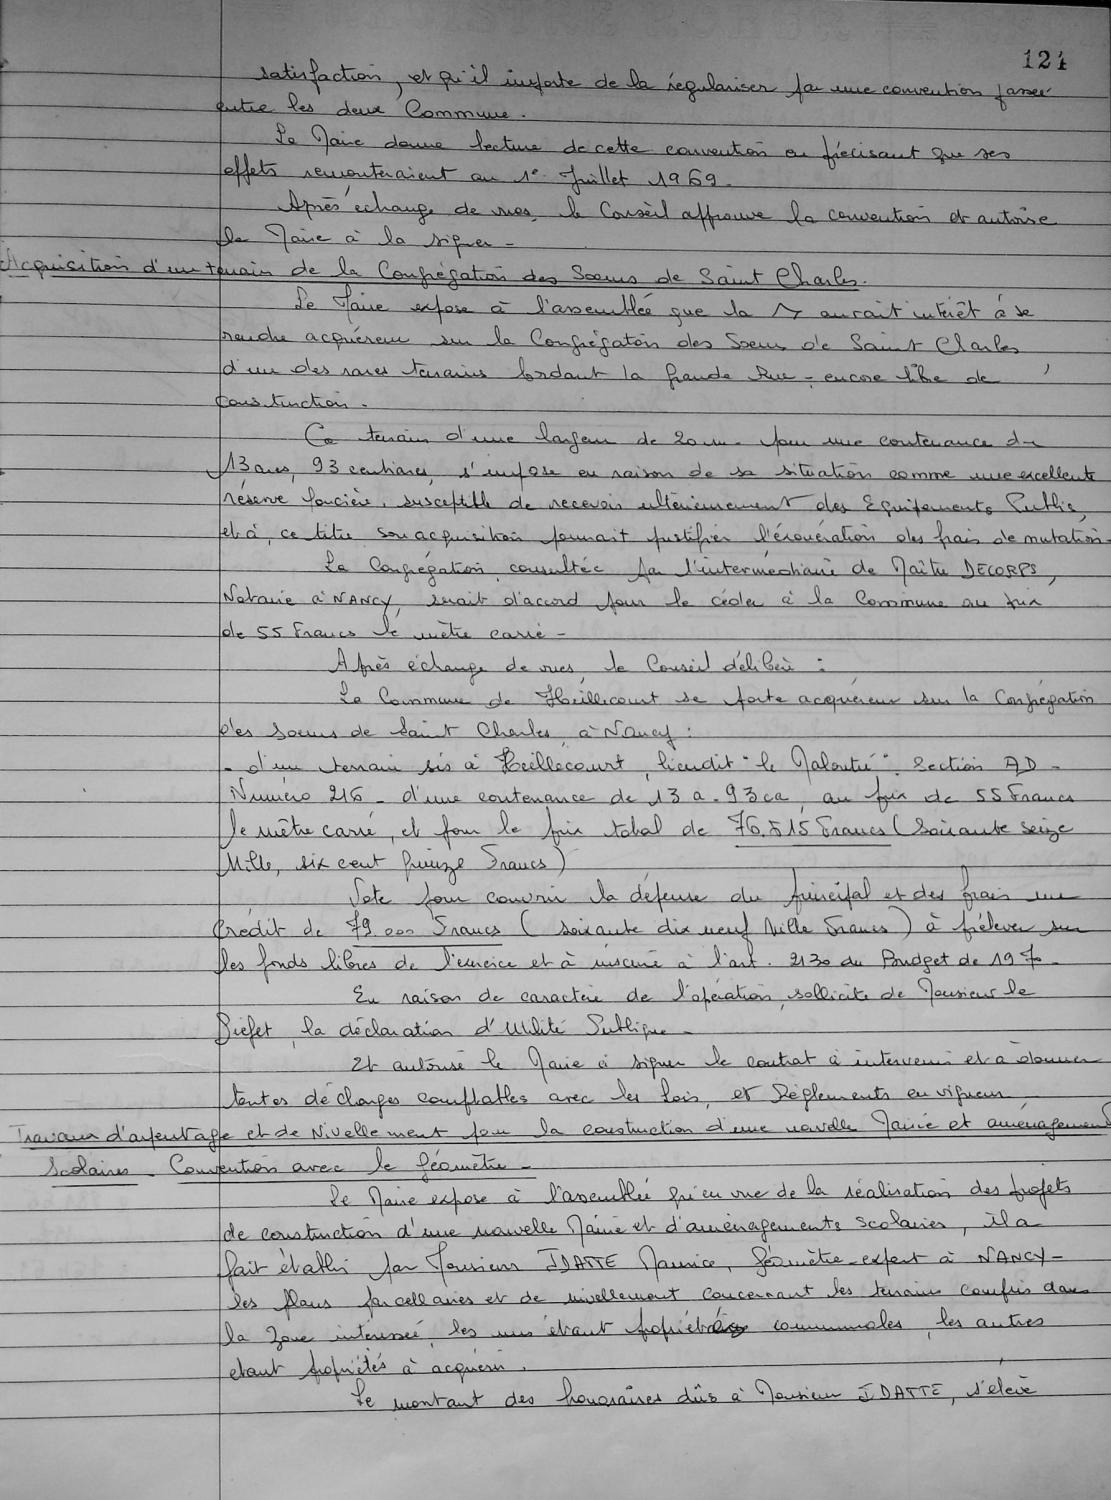 124
satisfaction, et qu'il importe de la régulariser par une convention passée
entre les deux Commune.
Le Maire donne lecture de cette convention en précisant que ses
effets remonteraient au 1° Juillet 1969.
Après échange de vues, le Conseil approuve la convention et autorise
le Maire à la signer -
Acquisition d'un terrain de la Congrégation des Soeurs de Saint Charles.
Le Maire expose à l'assemblée que la aurait intérêt à se
rendre acquéreur sur la Congrégation des Soeurs de Saint Charles,
d'un des rares terrains bordant la Grande Rue - encore libre de
construction.
Ce terrain d'une largeur de 20 m. pour une contenance de
13 ares, 93 centiares, s'impose en raison de sa situation comme une excellente
réserve foncière, susceptible de recevoir ultérieurement des Equipements Publics,
et à, ce titre son acquisition pourrait justifier l'éxonération des frais de mutation.
La Congrégation, consultée par l'intermédiaire de Maître DECORPS,
Notaire à NANCY, serait d'accord pour le céder à la Commune au prix
de 55 Francs le mètre carré -
Après échange de vues, le Conseil délibère :
La Commune de Heillecourt se porte acquéreur sur la Congrégation
des soeurs de Saint Charles, à Nancy :
- d'un terrain sis à Heillecourt, lieudit "le ". Section AD -
Numéro 216 - d'une contenance de 13 a. 93 ca, au prix de 55 Francs
le mètre carré, et pour le prix total de 76.615 Francs (Soixante seize
Mille, six cent quinze Francs)
Vote pour couvrir la dépense du principal et des frais un
crédit de 79.000 Francs ( soixante dix neuf Mille Francs ) à prélever sur
les fonds libres de l'exercice et à inscrire à l'art. 2130 du Budget de 197
En raison de caractère de l'opération, sollicite de Monsieur le
Préfet, la déclaration d'Utilité Publique -
Et autorise le Maire à signer le contrat à intervenir et à donner
toutes décharges comptables avec les Lois, et Réglements en vigueur.
Travaux d'arpentage et de Nivellement pour la construction d'une nouvelle Mairie et aménagement
Scolaires - Convention avec le Géomètre -
Le Maire expose à l'assemblée qu'en vue de la réalisation des projets
de construction d'une nouvelle Mairie et d'aménagements scolaires, il a
fait établir par Monsieur IDATTE Maurice, Géomètre-expert à NANCY -
les plans parcellaires et de nivellement concernant les terrains compris dans
la zone intéressée, les uns étant propriétés communales, les autres
étant propriétés à acquérir.
Le montant des honoraires dûs à Monsieur IDATTE, s'élève